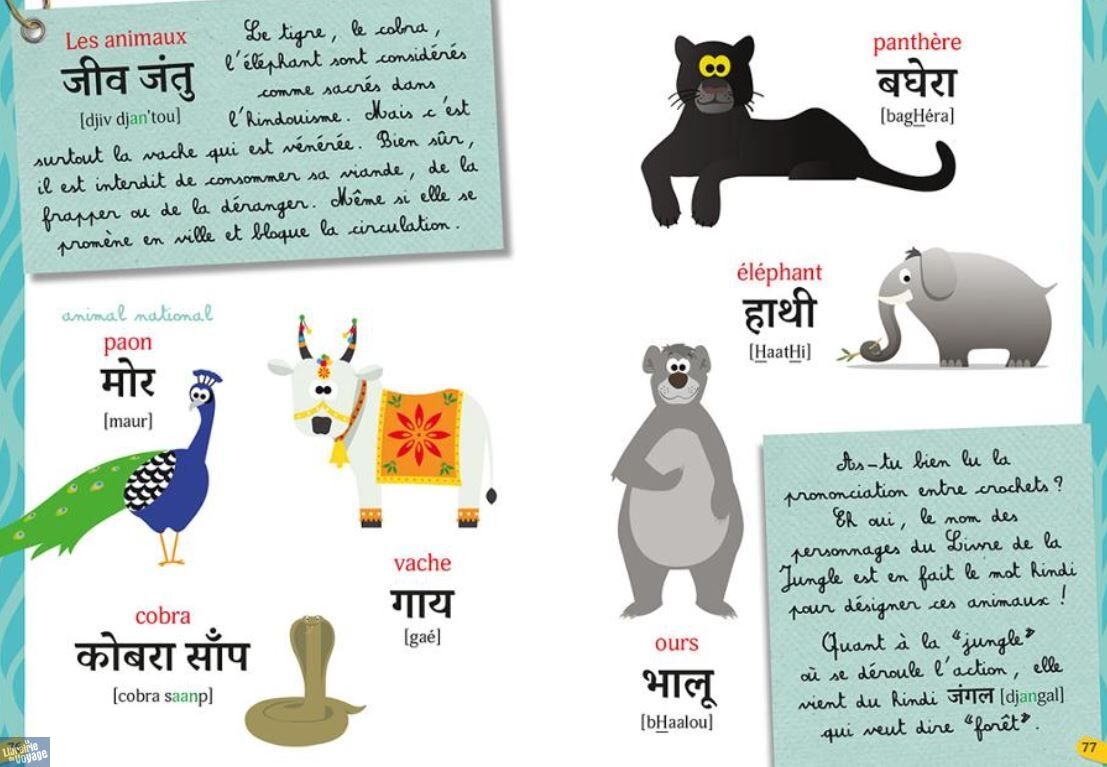 Les animaux
जीव जंतु
[djiv djan'tou]
Le tigre, le cobra,
l'éléphant sont considérés
comme sacrés dans
l'hindouisme. Mais c'est
surtout la vache qui est vénérée. Bien sûr,
il est interdit de consommer sa viande, de la
frapper ou de la déranger. Même si elle se
promène en ville et bloque la circulation.
animal national
paon
मोर
[maur]
vache
गाय
[gaé]
cobra
कोबरा साँप
[cobra saanp]
panthère
बघेरा
[bagHéra]
éléphant
हाथी
[HaatHi]
ours
भालू
[bHaalou]
As-tu bien lu la
prononciation entre crochets ?
Eh oui, le nom des
personnages du Livre de la
Jungle est en fait le mot hindi
pour désigner ces animaux !
Quant à la "jungle"
où se déroule l'action, elle
vient du hindi जंगल [djangal]
qui veut dire "forêt".
77
La Librairie
du Voyage